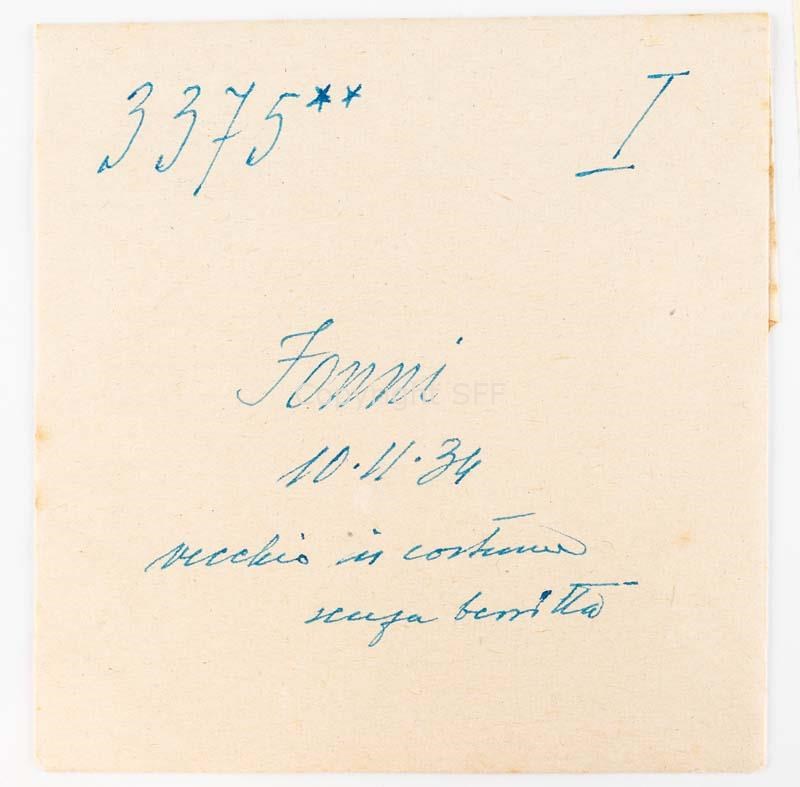 3375** I
Fonni
Copyright SFF
10·11·34
vecchio in costume
senza berritta